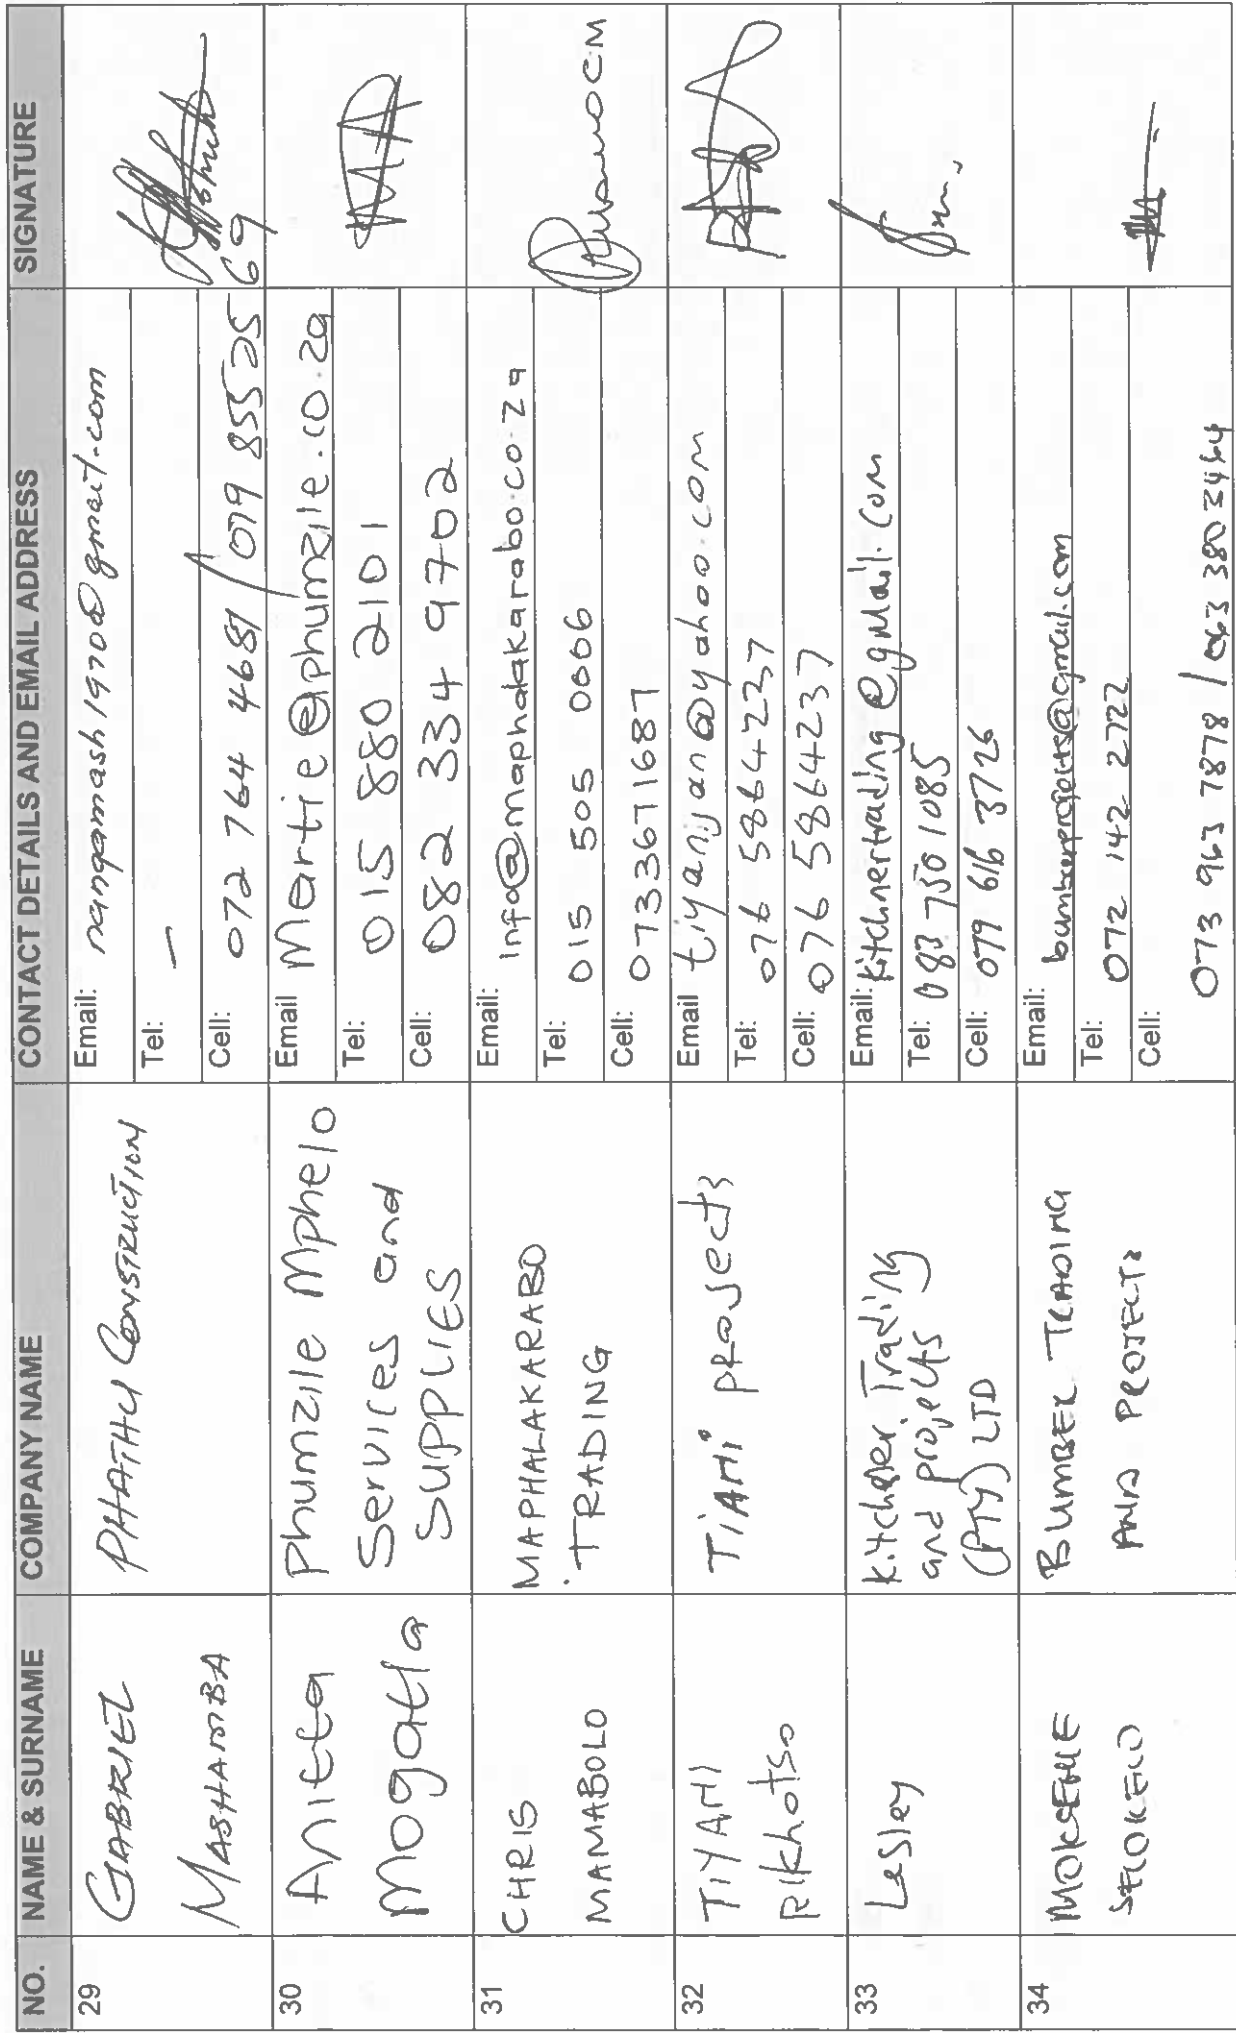 NO. NAME & SURNAME COMPANY NAME CONTACT DETAILS AND EMAIL ADDRESS SIGNATURE
29
GABRIEL
MASHAMBA
PHATHU CONSTRUCTION
Email: nangamash1970@gmail.com
Tel: —
Cell: 072 764 4681 / 079 855 25
69
30
Anitta
Mogatla
Phumzile Mphelo
Services and
SUPPLIES
Email Martie@phumzile.co.za
Tel: 015 880 2101
Cell: 082 334 9702
31
CHRIS
MAMABOLO
MAPHALAKARABO
TRADING
Email: Info@maphalakarabo.co.za
Tel: 015 505 0006
Cell: 0733671687
32
TIYANI
Rikhotso
TiANi projects
Email tiyanijan@yahoo.com
Tel: 076 5864237
Cell: 076 5864237
33
Lesley
Kitchener Trading
and projects
(PTY) LTD
Email: Kitchnertrading@gmail.com
Tel: 083 750 1085
Cell: 079 616 3726
34
BUMBEK TRADING
AND PROJECTS
Email:
Tel: 072 142 2722
Cell:
073 963 7878 / 063 380 3464